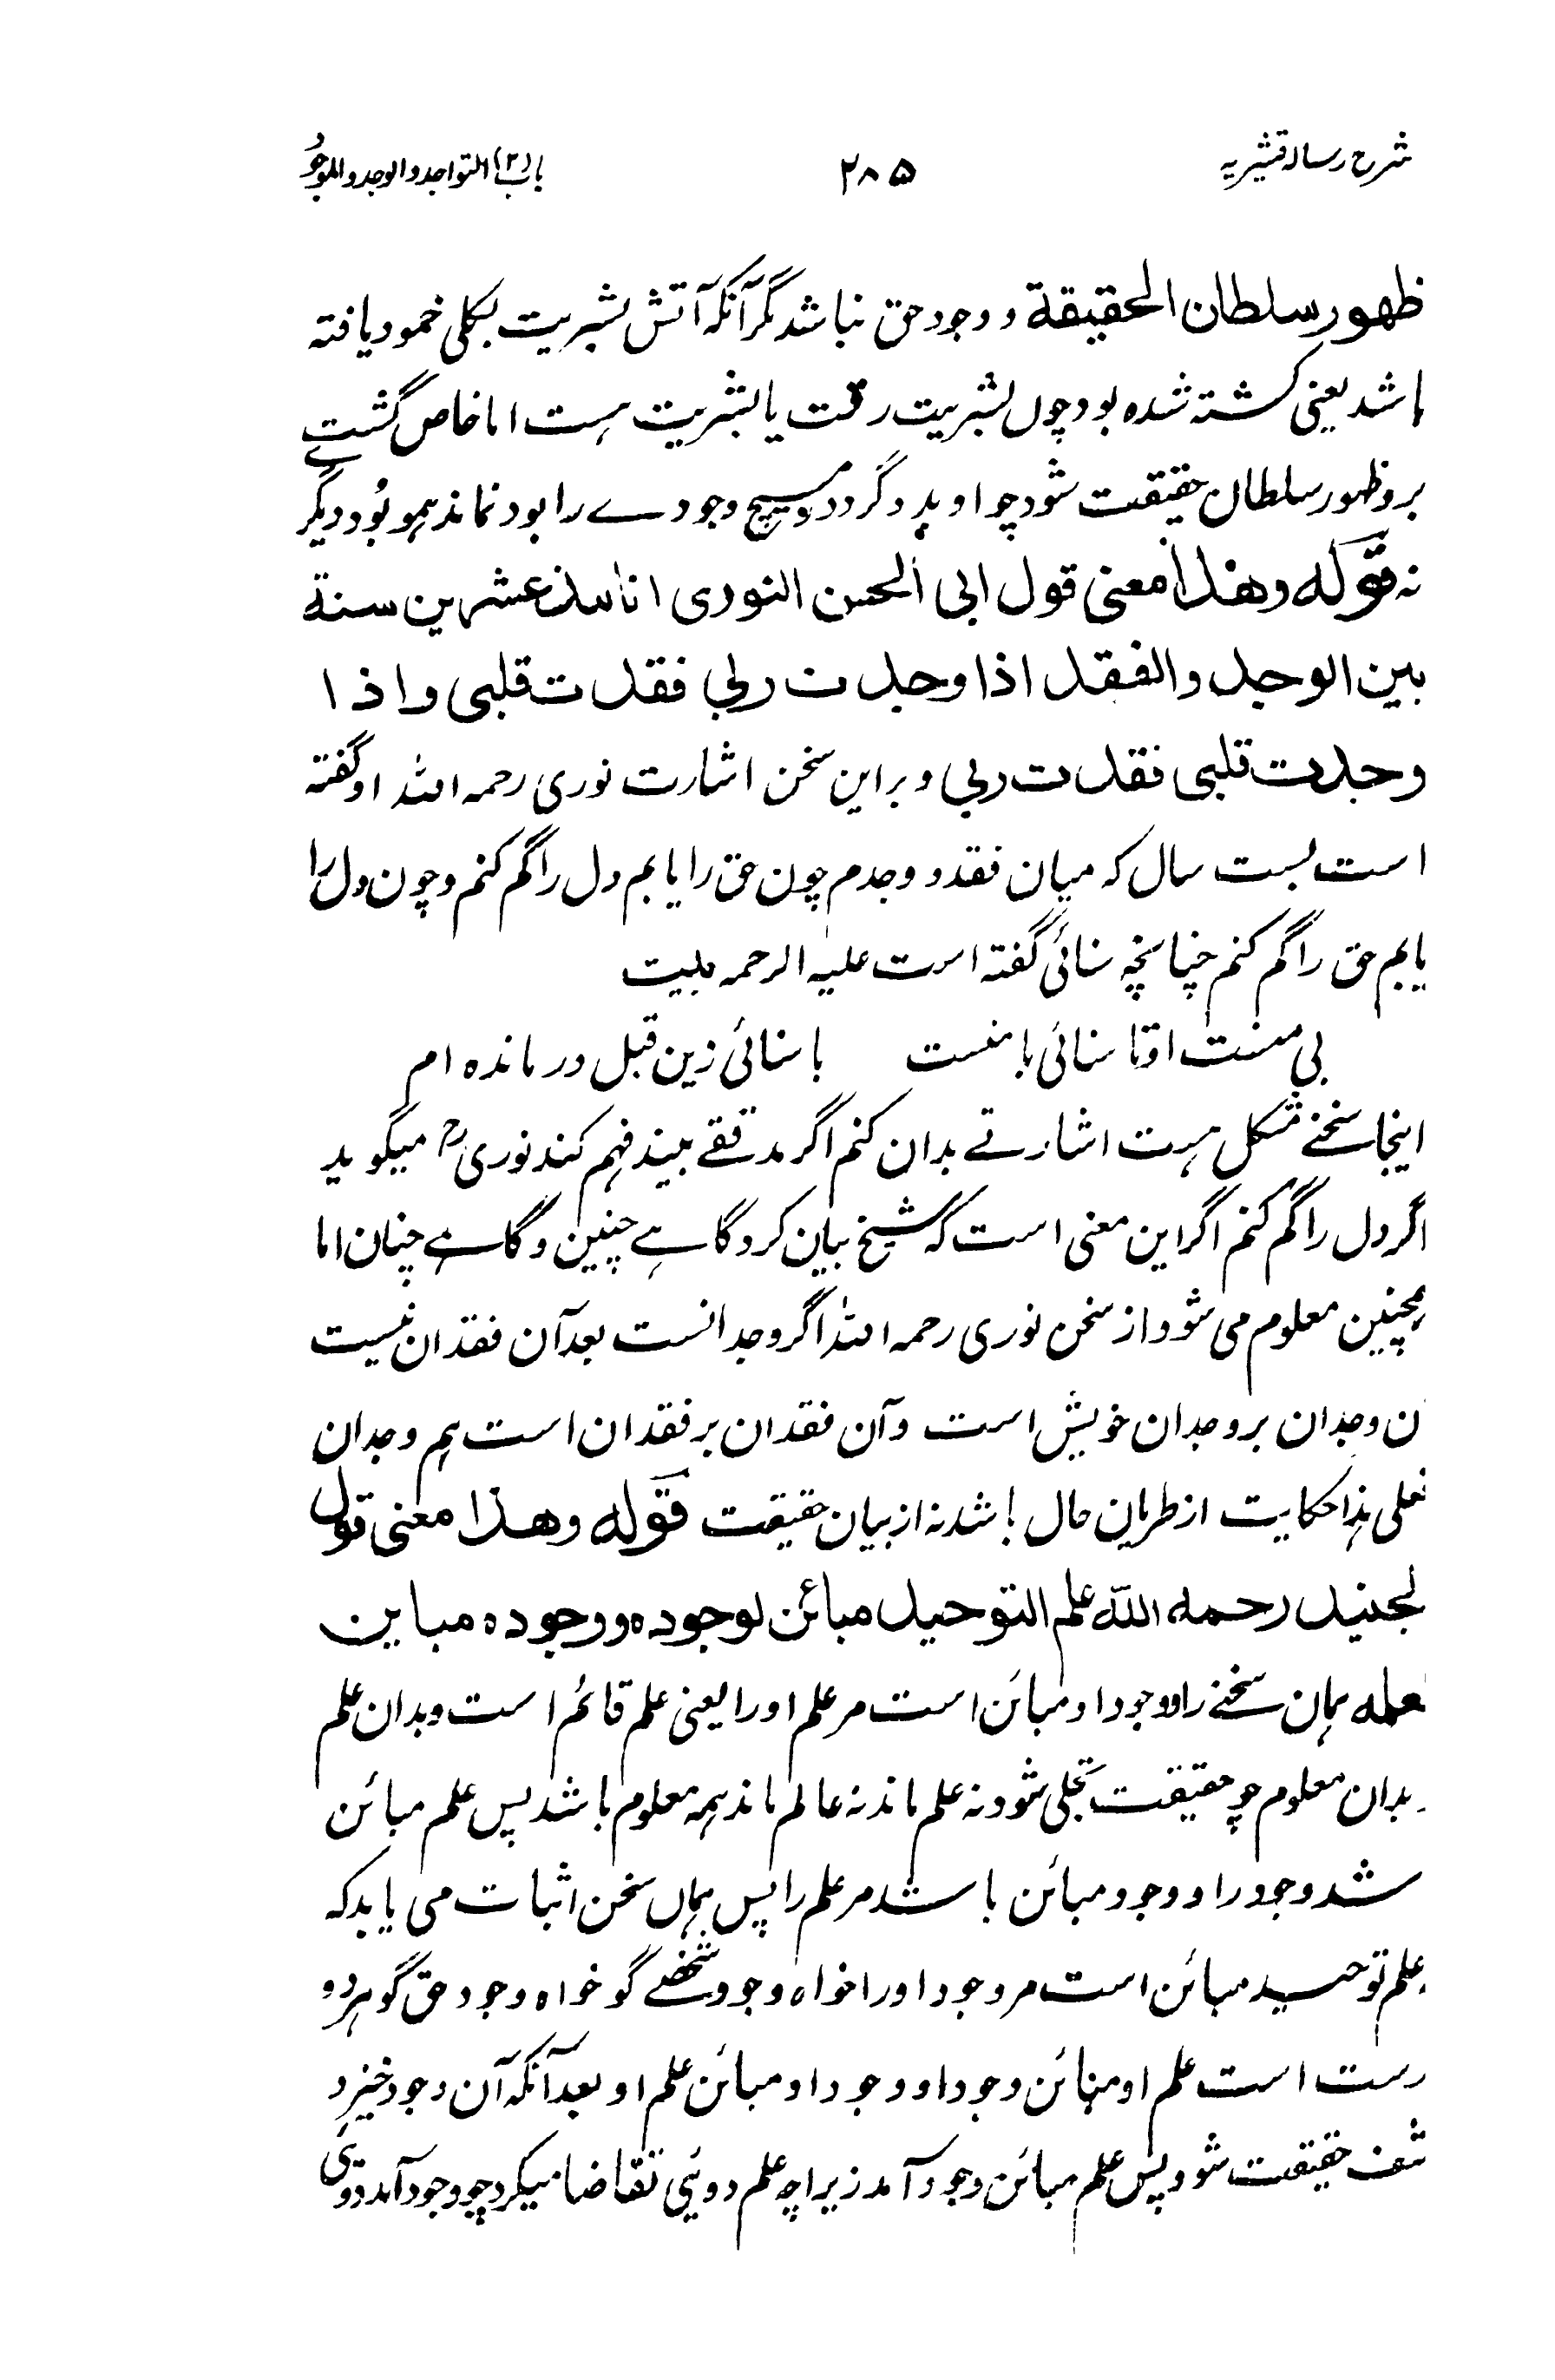 شرح رسالہ قشیریہ
۲۸۵
باب (۳) التواجد والوجد والوجود
ظهور سلطان الحقیقة و وجود حق نباشد مگر آنکہ آتش بشریت بکلی خمود یافتہ
باشد یعنی کشتہ شدہ بود چوں بشریت رفت یا بشریت ہست اما خاص گشتے
بر وظہور سلطان حقیقت شود چو او پدید گردد و ہیچ وجودے را بود نماند ہمو بُود دیگر
نہ قولہ وهذا معنی قول ابی الحسن النوری انا منذ عشرین سنة
بین الوجد والفقد اذا وجدت ربی فقدت قلبی واذا
وجدت قلبی فقدت ربی و براین سخن اشارت نوری رحمہ اللہ او گفتہ
است بست سال کہ میان فقد و وجدم چون حق را یابم دل را گم کنم و چون دل را
یابم حق را گم کنم چنانچہ سنائی گفتہ است علیہ الرحمہ بیت
بی منست او تا سنائی با منست با سنائی زین قبل درماندہ ام
اینجا سخنے مشکل ہست اشارتے بدان کنم اگر مدققے بیند فہم کند نوریؒ میگوید
اگر دل را گم کنم اگر این معنی است کہ شیخ بیان کرد گاہے چنین و گاہے چنان اما
ہمچنین معلوم می شود از سخن نوری رحمہ اللہ اگر وجدانست بعد آن فقدان نیست
ن وجدان بر وجدان خویش است و آن فقدان بر فقدان است ہم وجدان
فعلی ہذا حکایت از طریان حال باشد نہ از بیان حقیقت قولہ وهذا معنی قول
لجنید رحمہ اللہ علم التوحید مبائن لوجودہ ووجودہ مباین
لعلمہ ہمان سخنے را ووجود او مبائن است مر علم او را یعنی علم قائم است و بدان علم
بدان معلوم چو حقیقت تجلی شود نہ علم ماند نہ عالم ماند ہمہ معلوم باشد پس علم مبائن
شد وجود را و وجود مبائن باشد مر علم را پس ہماں سخن اثبات می یابد کہ
علم توحید مبائن است مر وجود او را خواہ وجود شخصے گو خواہ وجود حق گو ہر دو
رست است علم او مبائن وجود او و وجود او مبائن علم او بعد آنکہ آن وجود خیزد
شف حقیقت شود پس علم مبائن وجود آمد زیراچہ علم دوئی تقاضا میکرد چو وجود آمد دوئی